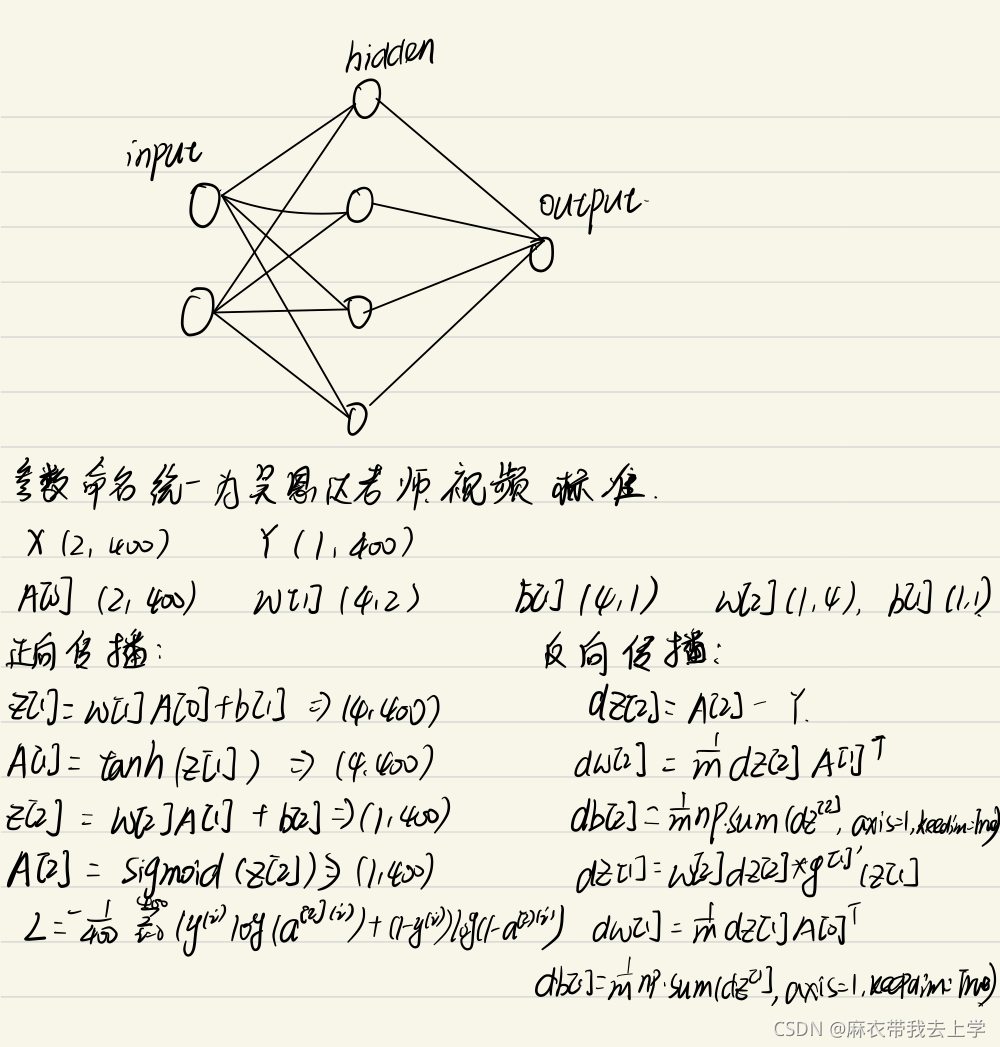 hidden
input
output
参数命名统一为吴恩达老师视频标准.
X (2, 400) Y (1, 400)
A[0] (2, 400) W[1] (4, 2) b[1] (4, 1) W[2] (1, 4), b[2] (1, 1)
正向传播:
z[1] = W[1] A[0] + b[1] => (4, 400)
A[1] = tanh (z[1]) => (4, 400)
z[2] = W[2] A[1] + b[2] => (1, 400)
A[2] = sigmoid (z[2]) => (1, 400)
L = -1/400 400∑i=0 (y^(i) log (a^[2](i)) + (1-y^(i)) log(1-a^[2](i))
反向传播:
dz[2] = A[2] - Y.
dw[2] = 1/m dz[2] A[1]^T
db[2] = 1/m np.sum (dz^[2], axis=1, keepdim=True)
dz[1] = W[2] dz[2] * g^[1]' (z[1]
dw[1] = 1/m dz[1] A[0]^T
db[1] = 1/m np.sum(dz^[1], axis=1, keepdim=True)
CSDN @麻衣带我去上学